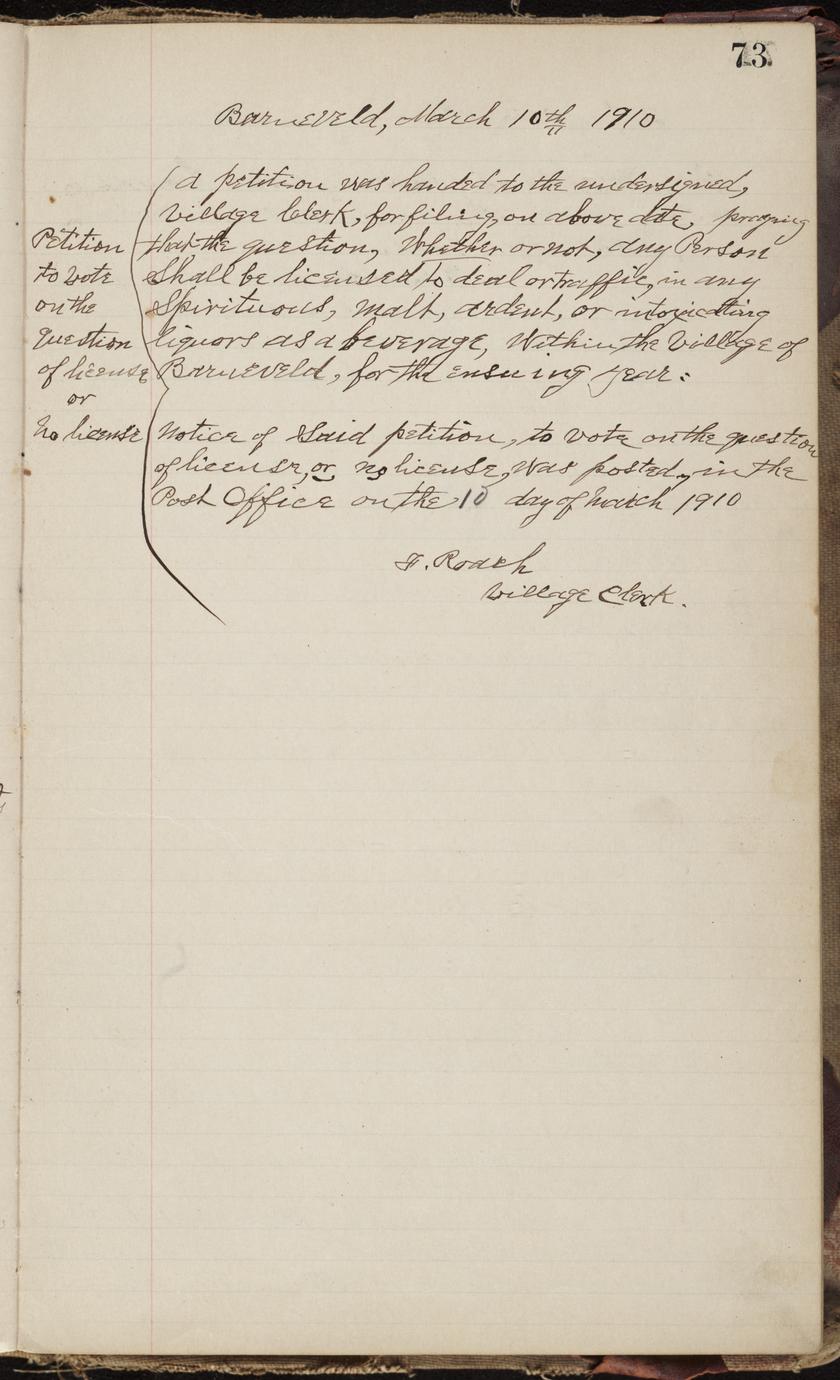 73
Barneveld, March 10th 1910
a petition was handed to the undersigned,
Village Clerk, for filing, on above date, praying
that the question, Whether or not, any Person
Shall be licensed to deal or traffic, in any
Spirituous, malt, ardent, or intoxicating
liquors as a beverage, Within the Village of
Barneveld, for the ensuing year:
Petition
to vote
on the
question
of license
or
no license
Notice of Said petition, to vote on the question
of license, or no license, was posted, in the
Post Office on the 10 day of March 1910
F. Roach
Village Clerk.